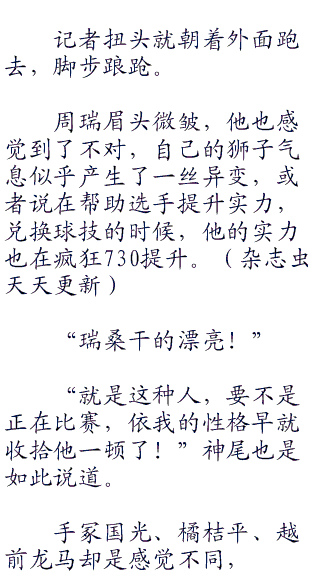 记者扭头就朝着外面跑
去，脚步踉跄。
周瑞眉头微皱，他也感
觉到了不对，自己的狮子气
息似乎产生了一丝异变，或
者说在帮助选手提升实力，
兑换球技的时候，他的实力
也在疯狂730提升。（杂志虫
天天更新）
“瑞桑干的漂亮！”
“就是这种人，要不是
正在比赛，依我的性格早就
收拾他一顿了！”神尾也是
如此说道。
手冢国光、橘桔平、越
前龙马却是感觉不同，